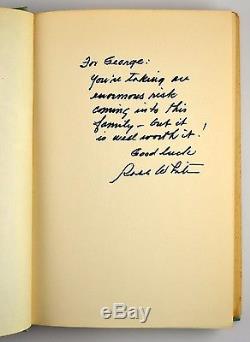 For George:
You're taking an
enormous risk
coming into this
family – but it
is well worth it!
Good luck
White
ebay